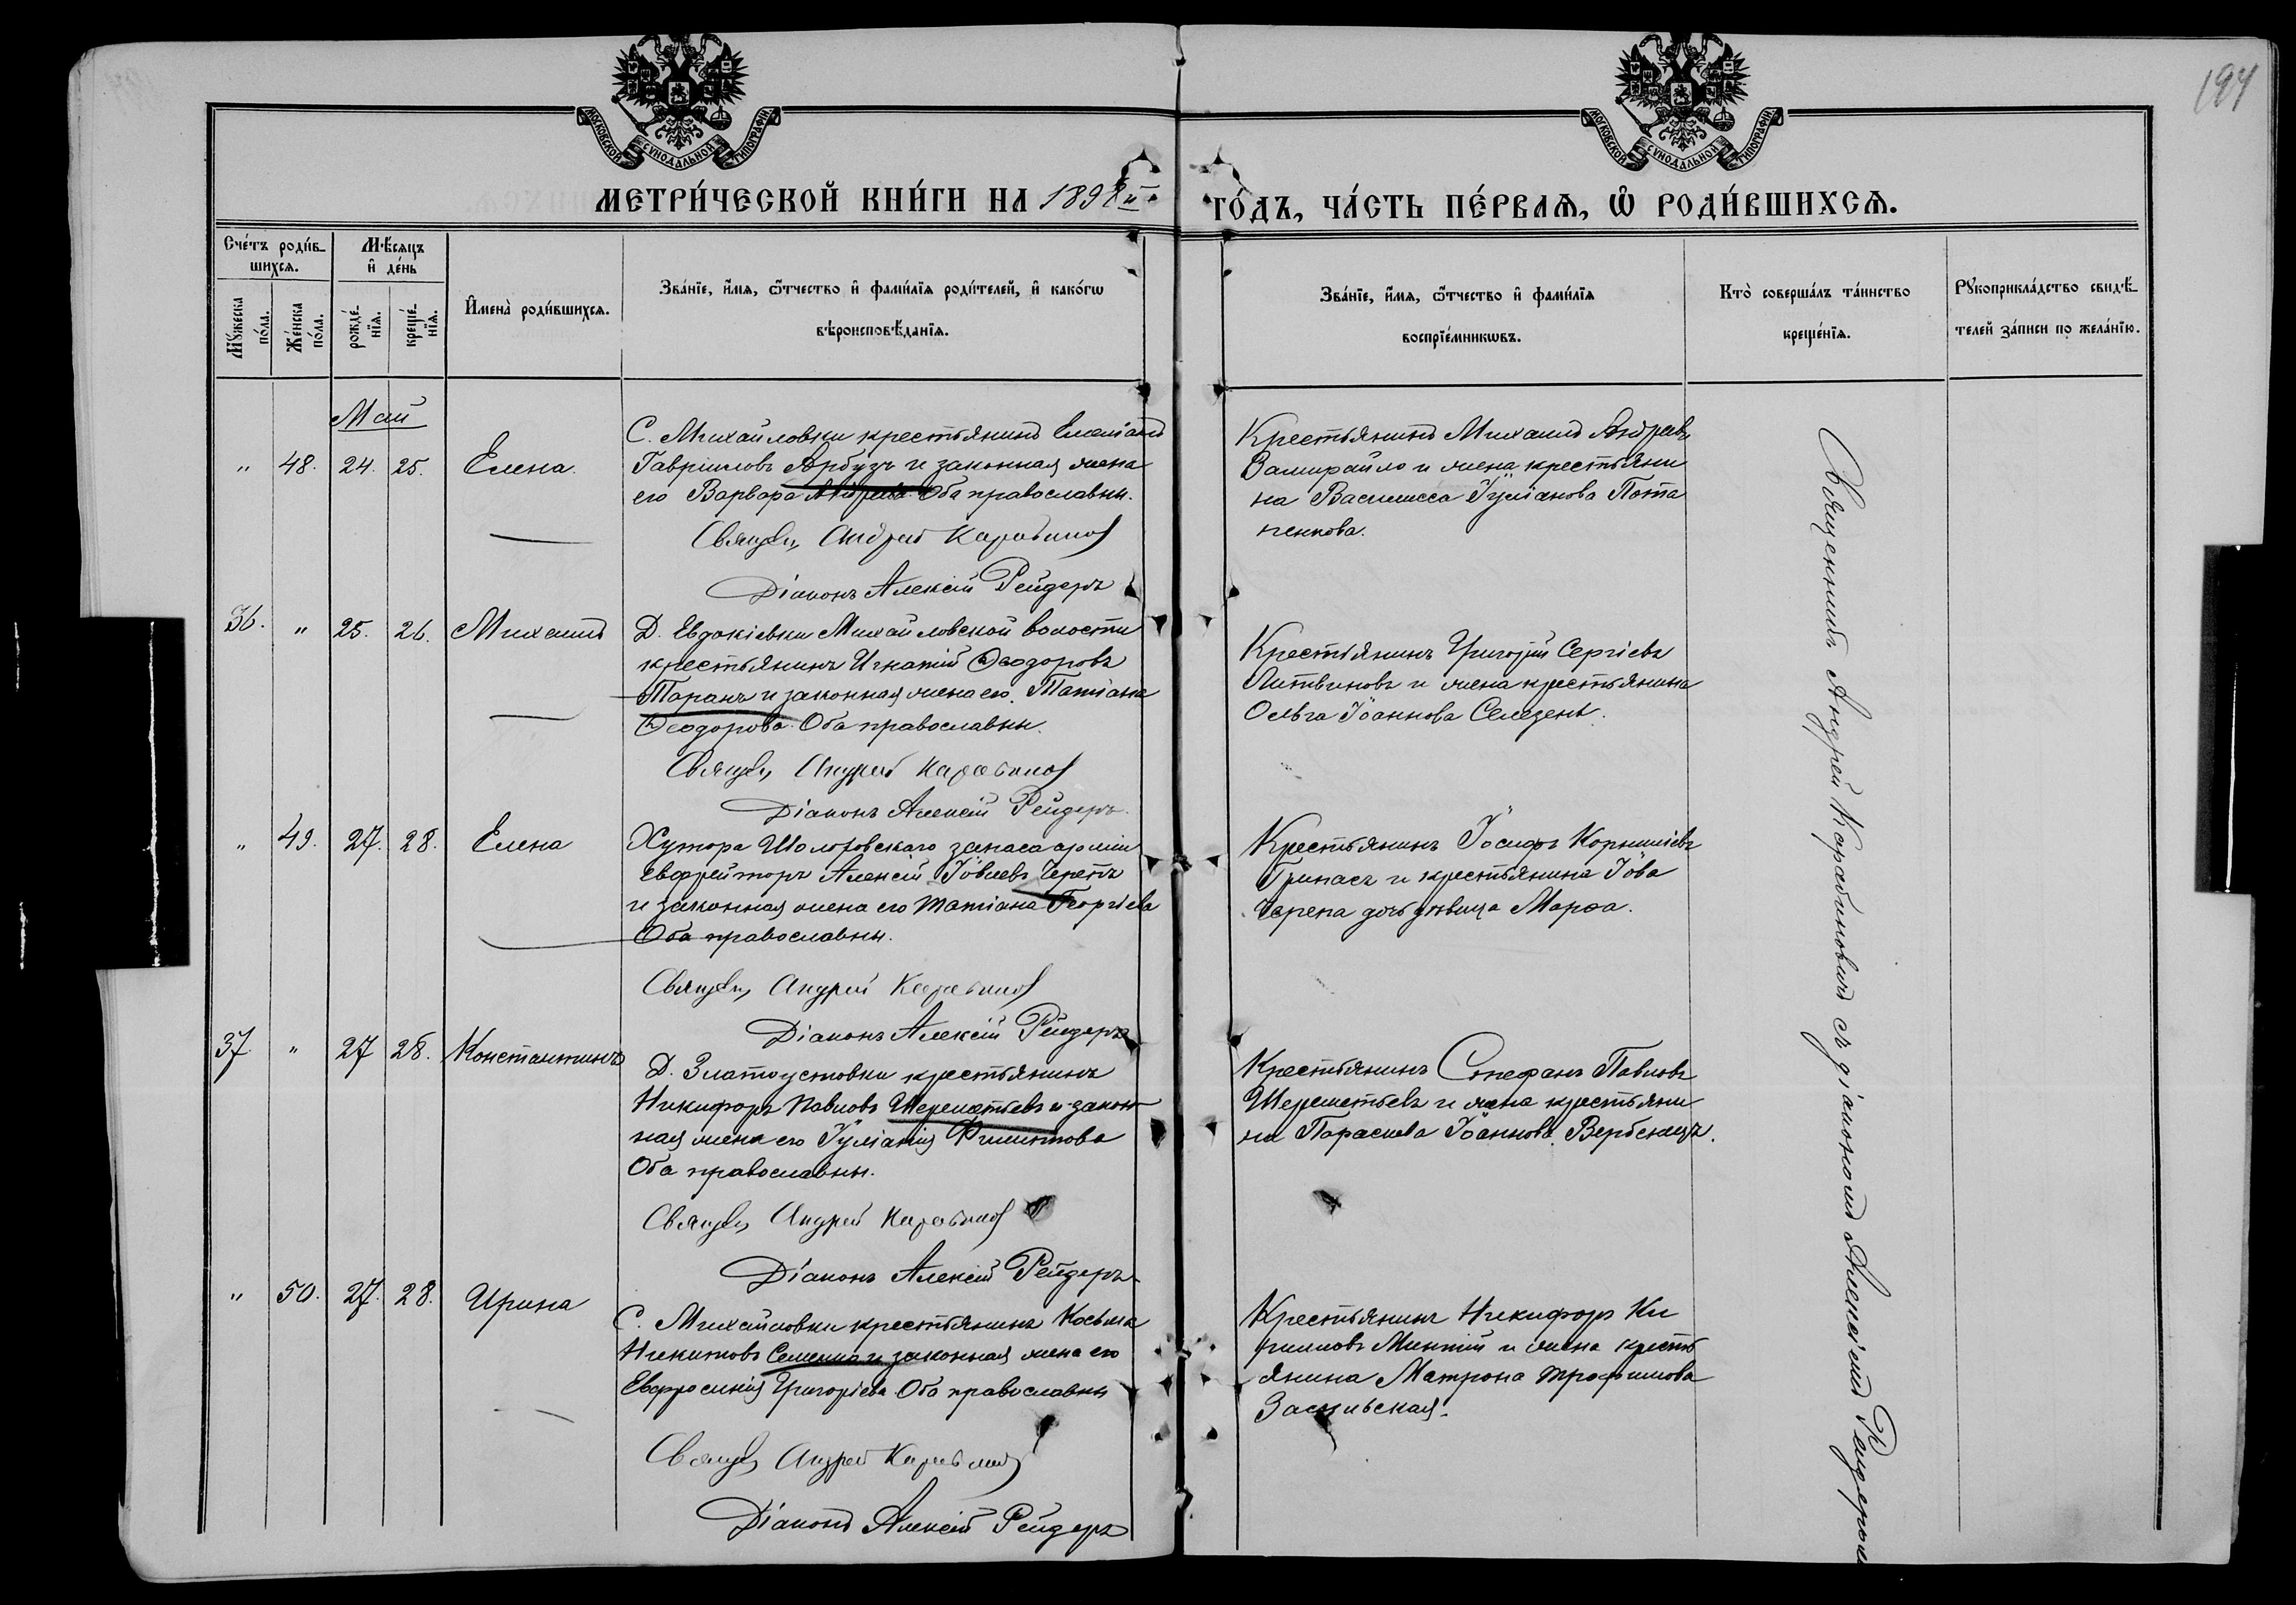 194
МОСКОВСКОЙ СѴНОДАЛЬНОЙ ТИПОГРАФІИ
МОСКОВСКОЙ СѴНОДАЛЬНОЙ ТИПОГРАФІИ
МЕТРИ́ЧЕСКОЙ КНИ́ГИ НА 1898й
ГО́ДЪ, ЧА́СТЬ ПЕ́РВАѦ, Ѽ РОДИ́ВШИХСѦ.
Сче́тъ роди́в-
шихсѧ.
Мѣ́сяцъ
и҆ де́нь
Мꙋ́жеска
по́ла.
Же́нска
по́ла.
рожде́-
нїѧ.
креще́-
нїѧ.
И҆мена̀ роди́вшихсѧ.
Зва́нїе, и҆́мѧ, ѻ҆́тчество и҆ фами́лїѧ роди́телей, и҆ како́гѡ
вѣроисповѣ́данїѧ.
Зва́нїе, и҆́мѧ, ѻ҆́тчество и҆ фами́лїѧ
воспрїе́мникѡвъ.
Кто̀ соверша́лъ та́инство
креще́нїѧ.
Рꙋкоприкла́дство свидѣ́-
телей за́писи по жела́нїю.
Май
" 48. 24. 25. Елена.
С. Михайловки крестьянинъ Емеліанъ
Гавріиловъ Арбузъ и законная жена
его Варвара Андреева Оба православны.
Священ. Андрей Карабинов
Діаконъ Алексій Рейдеръ
Крестьянинъ Михаилъ Андреевъ
Замирайло и жена крестьяни
на Василисса Іуліанова Пота
пенкова.
36. " 25. 26. Михаилъ
Д. Евдокіевки Михайловской волости
крестьянинъ Игнатій Ѳеодоровъ
Таранъ и законная жена его Татіана
Ѳеодорова Оба православны.
Священ. Андрей Карабинов
Діаконъ Алексій Рейдеръ.
Крестьянинъ Григорій Сергіевъ
Литвиновъ и жена крестьянина
Ольга Іоаннова Селезень.
" 49. 27. 28. Елена
Хутора запаса арміи
Ефрейторъ Алексій Іовлевъ Черепъ
и законная жена его Татіана Георгіева
Оба православны.
Священ. Андрей Карабинов
Діаконъ Алексій Рейдеръ
Крестьянинъ Іосифъ Корниліевъ
Гринасъ и крестьянина Іова
Черепа дочь дѣвица Марѳа.
37. " 27 28. Константинъ
Д. Златоустовки крестьянинъ
Никифоръ Павловъ Шереметьевъ и закон
ная жена его Іуліанія Филиппова
Оба православны.
Священ. Андрей Карабинов
Діаконъ Алексій Рейдеръ
Крестьянинъ Стефанъ Павловъ
Шереметьевъ и жена крестьяни
на Параскева Іоаннова
" 50. 27. 28. Ирина
С. Михайловки крестьянинъ Косьма
Никитовъ Семенко и законная жена его
Евфросинія Григоріева Оба православны
Священ. Андрей Карабинов
Діаконъ Алексій Рейдеръ
Крестьянинъ Никифоръ Ки
рилловъ и жена кресть
янина Матрона Трофимова
Священникъ Андрей Карабиновъ съ діакономъ Алексіемъ Рейдеромъ